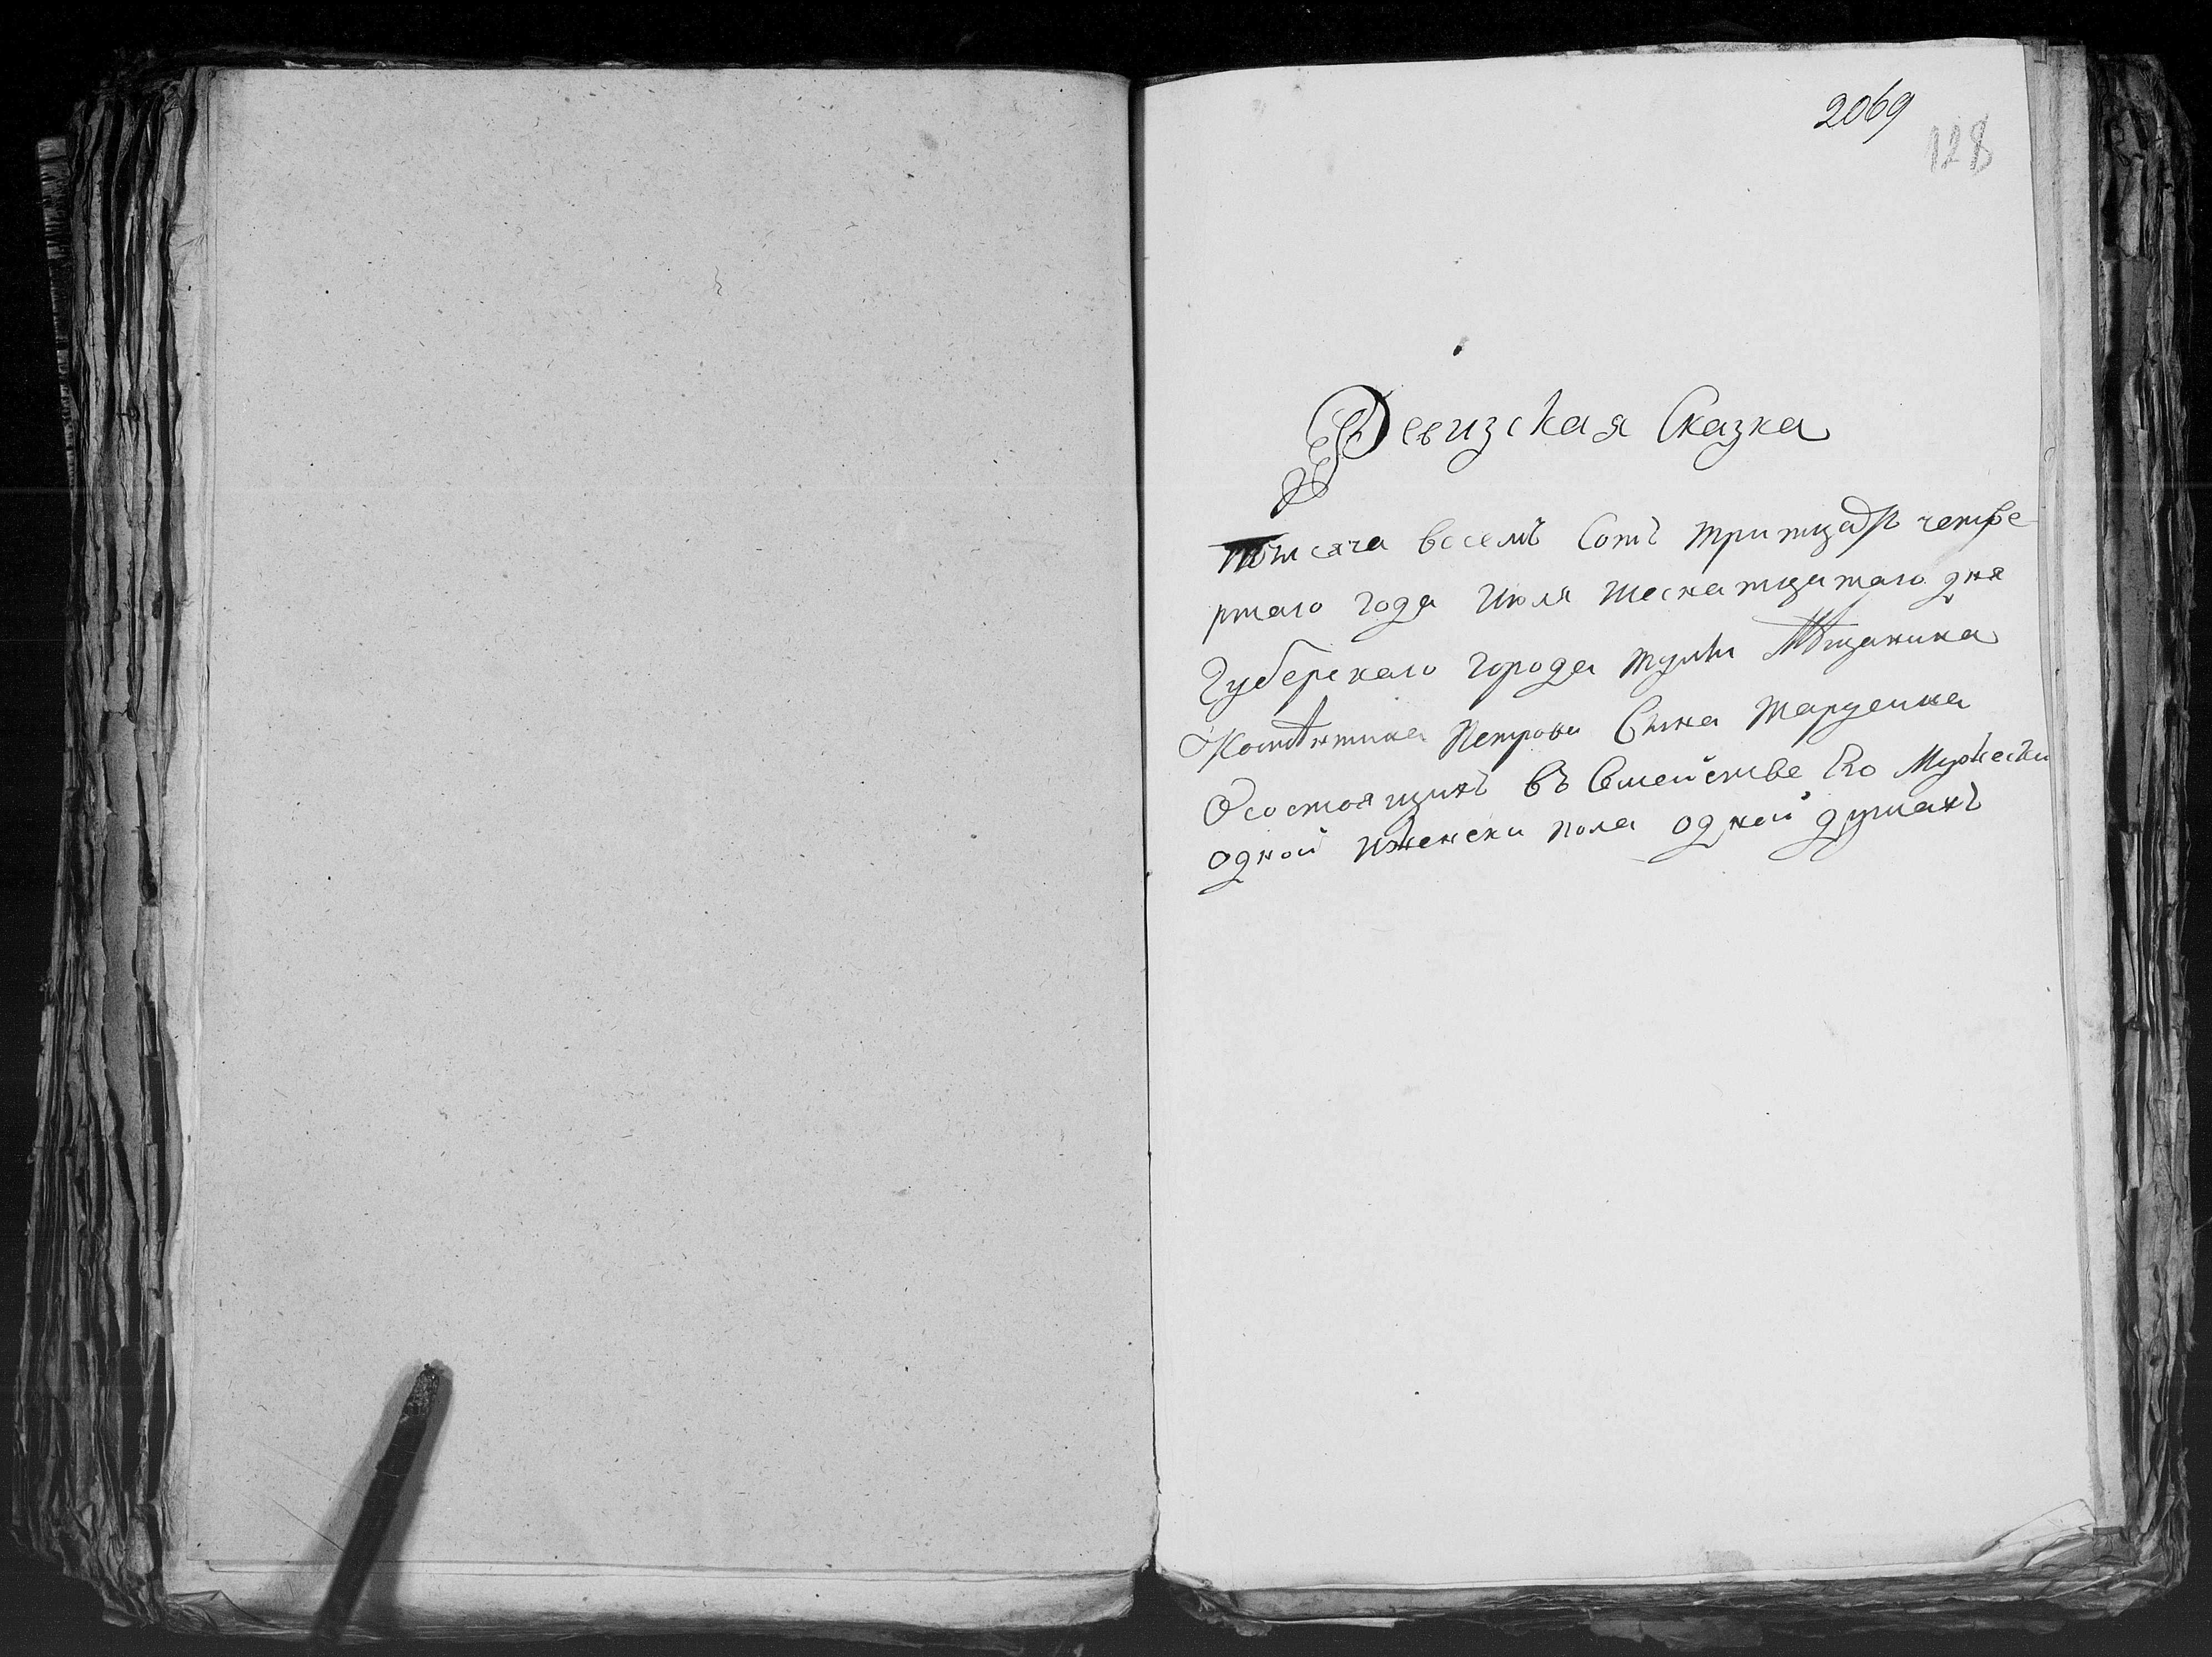 2069
128
Ревизская Сказка
тысяча восемъ Сотъ тритцать четве
ртаго года Июля шеснатцатаго дня
Губерскаго города тулы Мѣщанина
Костѣнтина Петрова Сына
Осостоящихъ въ Семействе Его Мужески
одной иженски пола одной душахъ